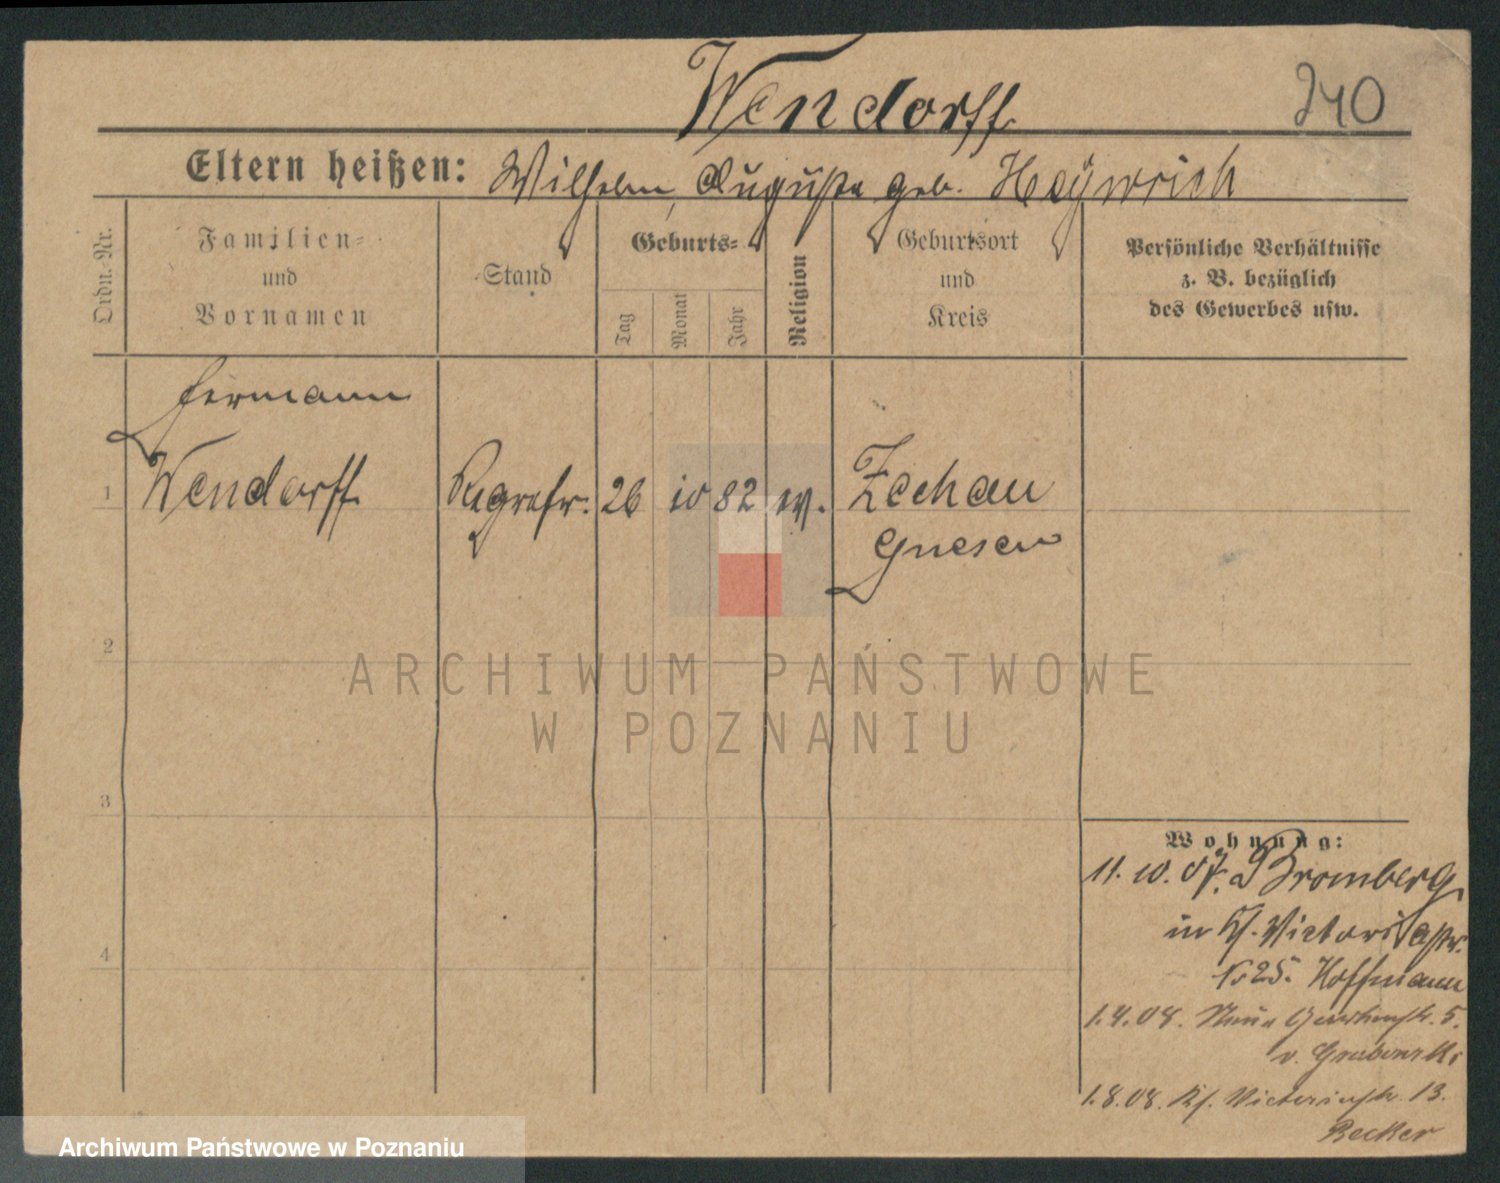 Wendorff
240
Eltern heißen: Wilhelm, Auguste geb.
Ordn.-Nr.
Familien-
und
Vornamen
Stand
Geburts-
Tag
Monat
Jahr
Religion
Geburtsort
und
Kreis
Persönliche Verhältnisse
z. B. bezüglich
des Gewerbes usw.
Hermann
1 Wendorff 26 10 82 ev. Zechau
Gnesen
2
3
4
Wohnung:
11. 10. 07. a Bromberg
in Kf. Victoriastr.
No 25. Hoffmann
1.4.08. Neue 5.
v. Grabowski
1.8.08. Kf. Victoriastr. 13.
Becker
ARCHIWUM PAŃSTWOWE
W POZNANIU
Archiwum Państwowe w Poznaniu